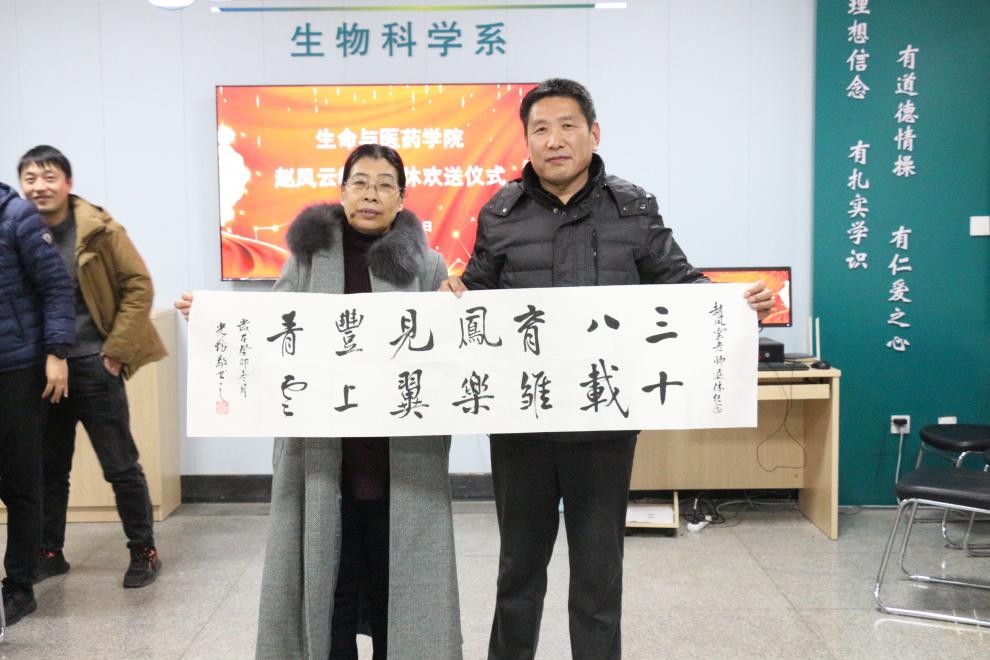 生物科学系
生命与医药学院
赵凤云 休欢送仪式
日
有道德情操 有仁爱之心
理想信念 有扎实学识
趙鳳雲老师退休纪念
三十
八載
育雏
鳳樂
見翼
豐上
青雲
歲在癸卯冬月